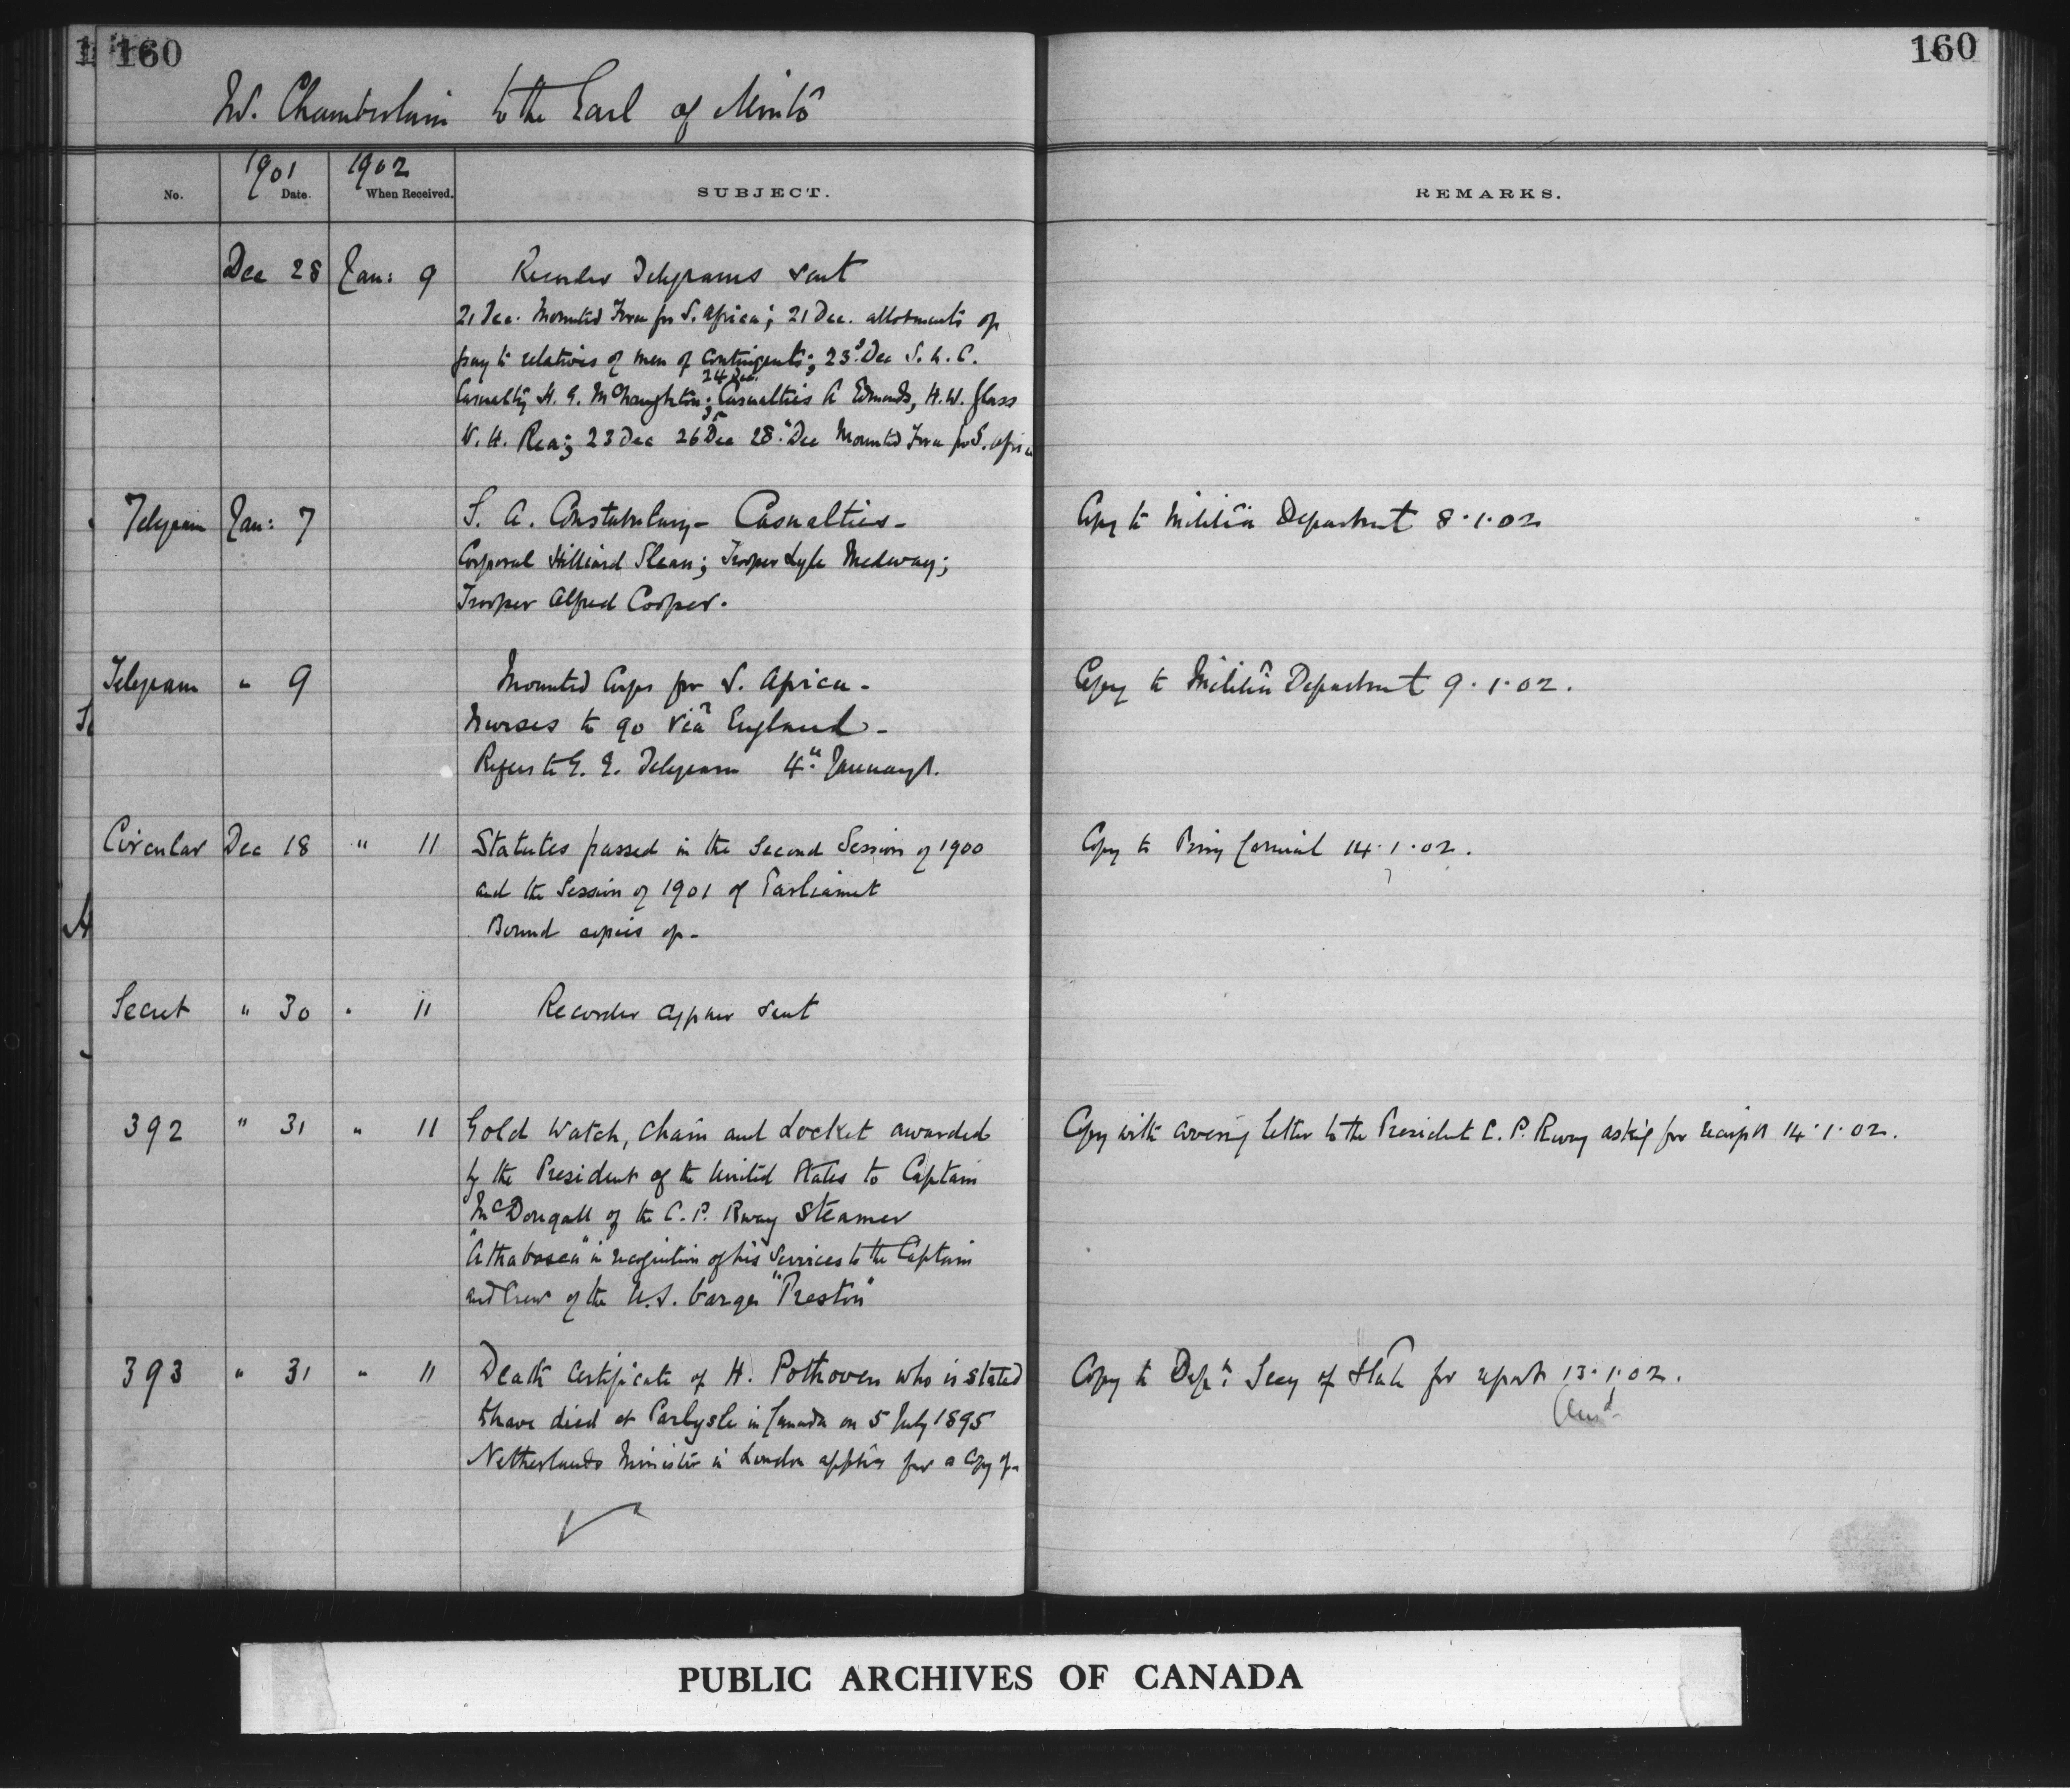 160
160
Mr. Chamberlain to the Earl of Minto
1901 1902
No. Date. When Received. SUBJECT. REMARKS.
Dec 28 Jan: 9 Recorder Telegrams sent
21 Dec. Mounted Force for S. Africa; 21 Dec. allotments of
pay to relatives of men of contingents; 23d. Dec S. A. C.
24 Dec.
Casualty H. G. McNaughton; Casualties A Edmonds, H. W. Glass
W. H. Rea; 23 Dec 26 Dec 28. Dec Mounted Force for S. Africa
Telegram Jan: 7 S. A. Constabulary - Casualties - Copy to Militia Department 8.1.02
Corporal Hilliard Slean; Trooper Lyle Medway;
Trooper Alfred Cooper.
Telegram " 9 Mounted Corps for S. Africa - Copy to Militia Department 9.1.02.
Nurses to go via England -
Refers to G. G. Telegram 4th. January.
Circular Dec 18 " 11 Statutes passed in the Second Session of 1900 Copy to Privy Council 14.1.02.
and the Session of 1901 of Parliament
Bound copies of -
Secret " 30 " 11 Recorder cypher sent
392 " 31 " 11 Gold Watch, Chain and Locket awarded Copy with covering letter to the President C. P. Rway asking for receipt 14.1.02.
by the President of the United States to Captain
McDougall of the C. P. Rway Steamer
"Athabasca" in recognition of his services to the Captain
and Crew of the U.S. barge "Preston"
393 " 31 " 11 Death Certificate of H. Pothoven who is stated Copy to Dept. Secy of State for report 13.1.02.
to have died at Carlysle in Canada on 5 July 1895 Ansd
Netherlands Minister in London applies for a Copy of -
PUBLIC ARCHIVES OF CANADA